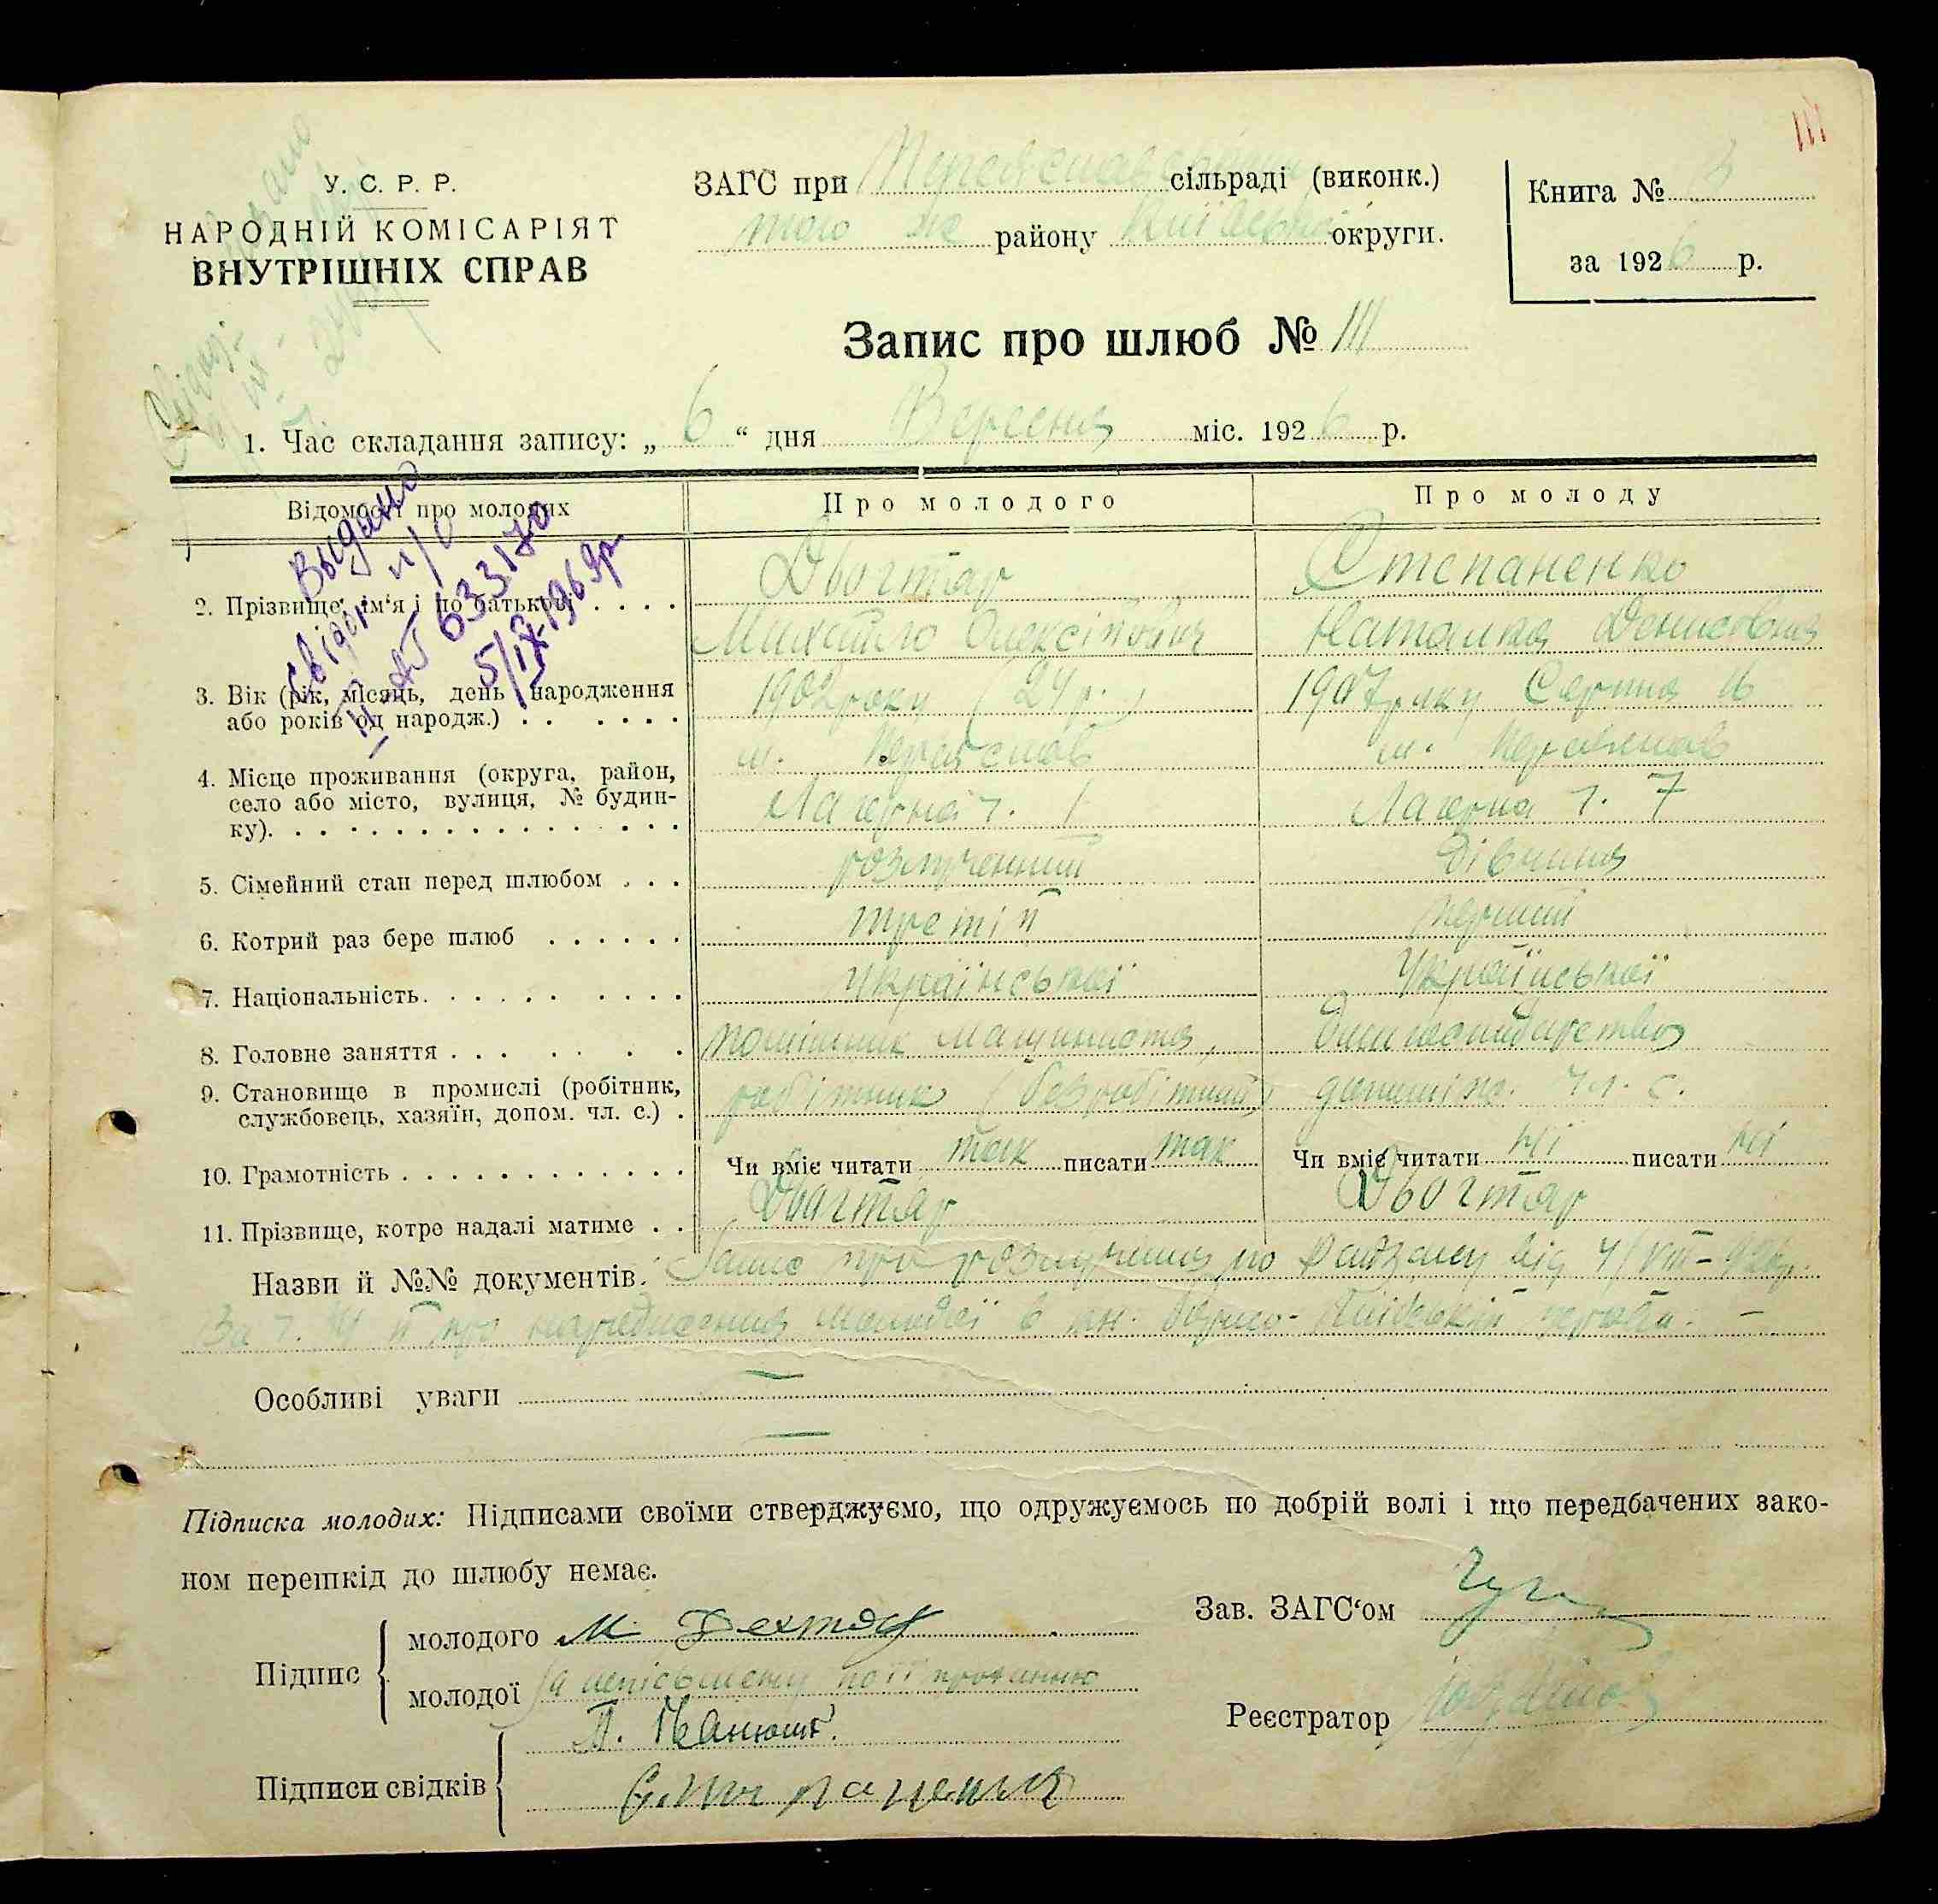 111
У. С. Р. Р.
НАРОДНІЙ КОМІСАРІЯТ
ВНУТРІШНІХ СПРАВ
ЗАГС при сільраді (виконк.)
того же району Київської округи.
Книга № 3
за 1926 р.
Запис про шлюб № 111
1. Час складання запису: „ 6 “ дня Вересня міс. 1926 р.
Видано
свідоц
п/о
633170
5/IX-1969р
Відомості про молодих Про молодого Про молоду
2. Прізвище, ім'я і по батькові Степаненко
Михайло Олексійович Наталка Денисовна
3. Вік (рік, місяць, день народження
або років од народж.) 1902 року (24 р.) 1907 року Серпня 16
4. Місце проживання (округа, район,
село або місто, вулиця, № будин-
ку). м. Переяслав м. Переяслав
Лагерна ч. 1 Лагерна ч. 7
5. Сімейний стан перед шлюбом розлучений дівчина
6. Котрий раз бере шлюб третій перший
7. Національність Української Української
8. Головне заняття помішник машиниста,
9. Становище в промислі (робітник,
службовець, хазяїн, допом. чл. с.) робітник (безробітний) чл. с.
10. Грамотність Чи вміє читати так писати так Чи вміє читати ні писати ні
11. Прізвище, котре надалі матиме
Назви й №№ документів. Запис про розлучення по від 4/VIII-926р.
За ч. й про народження молодої в
Особливі уваги —
—
Підписка молодих: Підписами своїми стверджуємо, що одружуємось по добрій волі і що передбачених зако-
ном перешкід до шлюбу немає.
Зав. ЗАГС'ом
Підпис молодого М.
молодої За неписьменну по її проханню
Реєстратор
Підписи свідків